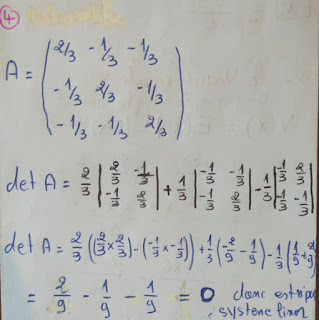 4
A = ( 2/3 - 1/3 - 1/3
- 1/3 2/3 - 1/3
- 1/3 - 1/3 2/3 )
det A = 2/3 | 2/3 - 1/3 - 1/3 2/3 | + 1/3 | - 1/3 - 1/3 - 1/3 2/3 | - 1/3 | - 1/3 2/3 - 1/3 - 1/3 |
det A = 2/3 ((2/3 × 2/3) - (- 1/3 × - 1/3)) + 1/3 (- 2/9 - 1/9) - 1/3 (1/9 + 2/9)
= 2/9 - 1/9 - 1/9 = 0 donc
système